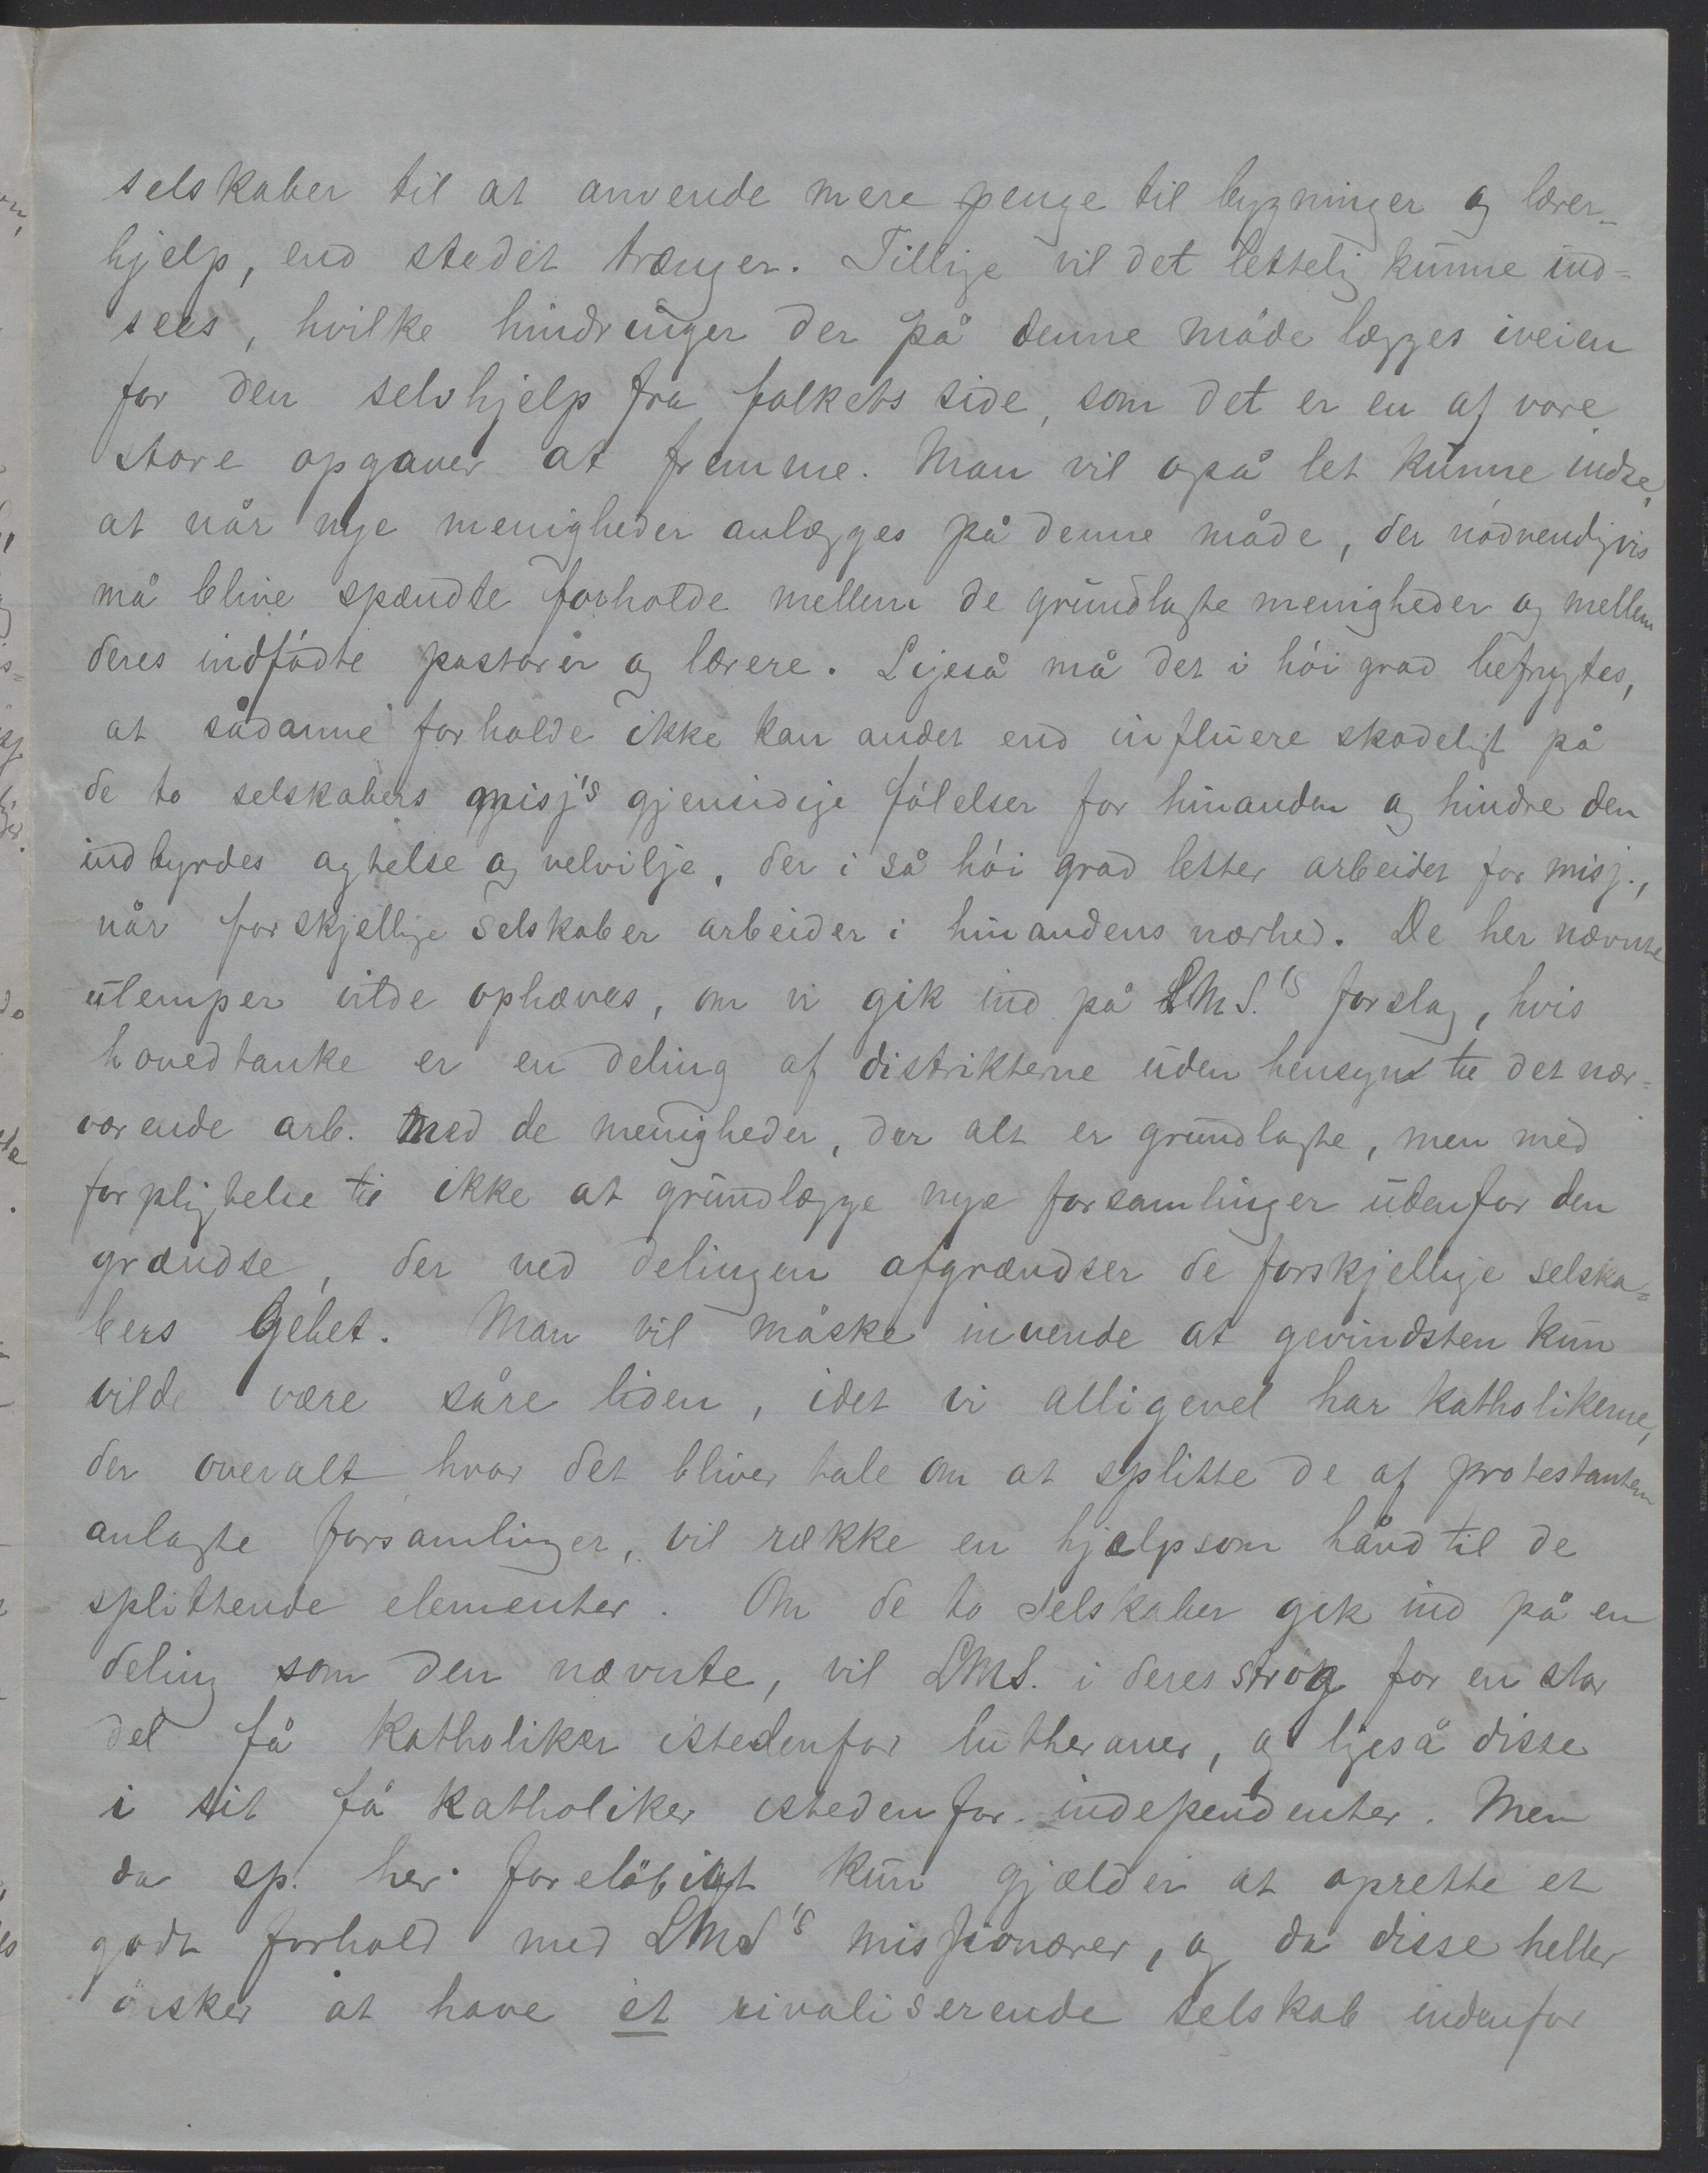 selskaber til at anvende mere penge til bygninger og lærer-
hjelp, end stedet trænger. Tillige vil det lettelig kunne ind=
sees, hvilke hindringer der på denne måde lægges iveien
for den selvhjelp fra folkets side, som det er en af vore
store opgaver at fremme. Man vil også let kunne indse,
at når nye menigheder anlægges på denne måde, der nødvendigvis
må blive spændte forholde mellem de grundlagte menigheder og mellem
deres indfødte pastorer og lærere. Ligeså må det i høi grad befrygtes,
at sådanne forholde ikke kan andet end influere skadeligt på
de to selskabers misj's gjensidige følelser for hinanden og hindre den
indbyrdes agtelse og velvilje, der i så høi grad letter arbeidet for misj.,
når forskjellige selskaber arbeider i hinandens nærhed. De her nævnte
ulemper vilde ophæves, om vi gik ind på LMS.'s forslag, hvis
hovedtanke er en deling af distrikterne uden hensyn til det nær=
værende arb. med de menigheder, der alt er grundlagte, men med
forpligtelse til ikke at grundlægge nye forsamlinger udenfor den
grændse, der ved delingen afgrændser de forskjellige selska=
bers Gebet. Man vil måske invende at gevindsten kun
vilde være såre liden, idet vi alligevel har katholikerne,
der overalt hvor det bliver tale om at splitte de af protestanterne
anlagte forsamlinger, vil række en hjælpsom hånd til de
splittende elementer. Om de to selskaber gik ind på en
deling som den nævnte, vil LMS. i deres strøg for en stor
del få katholiker istedenfor lutheraner, og ligeså disse
i sit få katholiker istedenfor independenter. Men
da sp. her foreløbigt kun gjælder at oprette et
godt forhold med LMS's missionærer, og da disse heller
ønsker at have et rivaliserende selskab indenfor